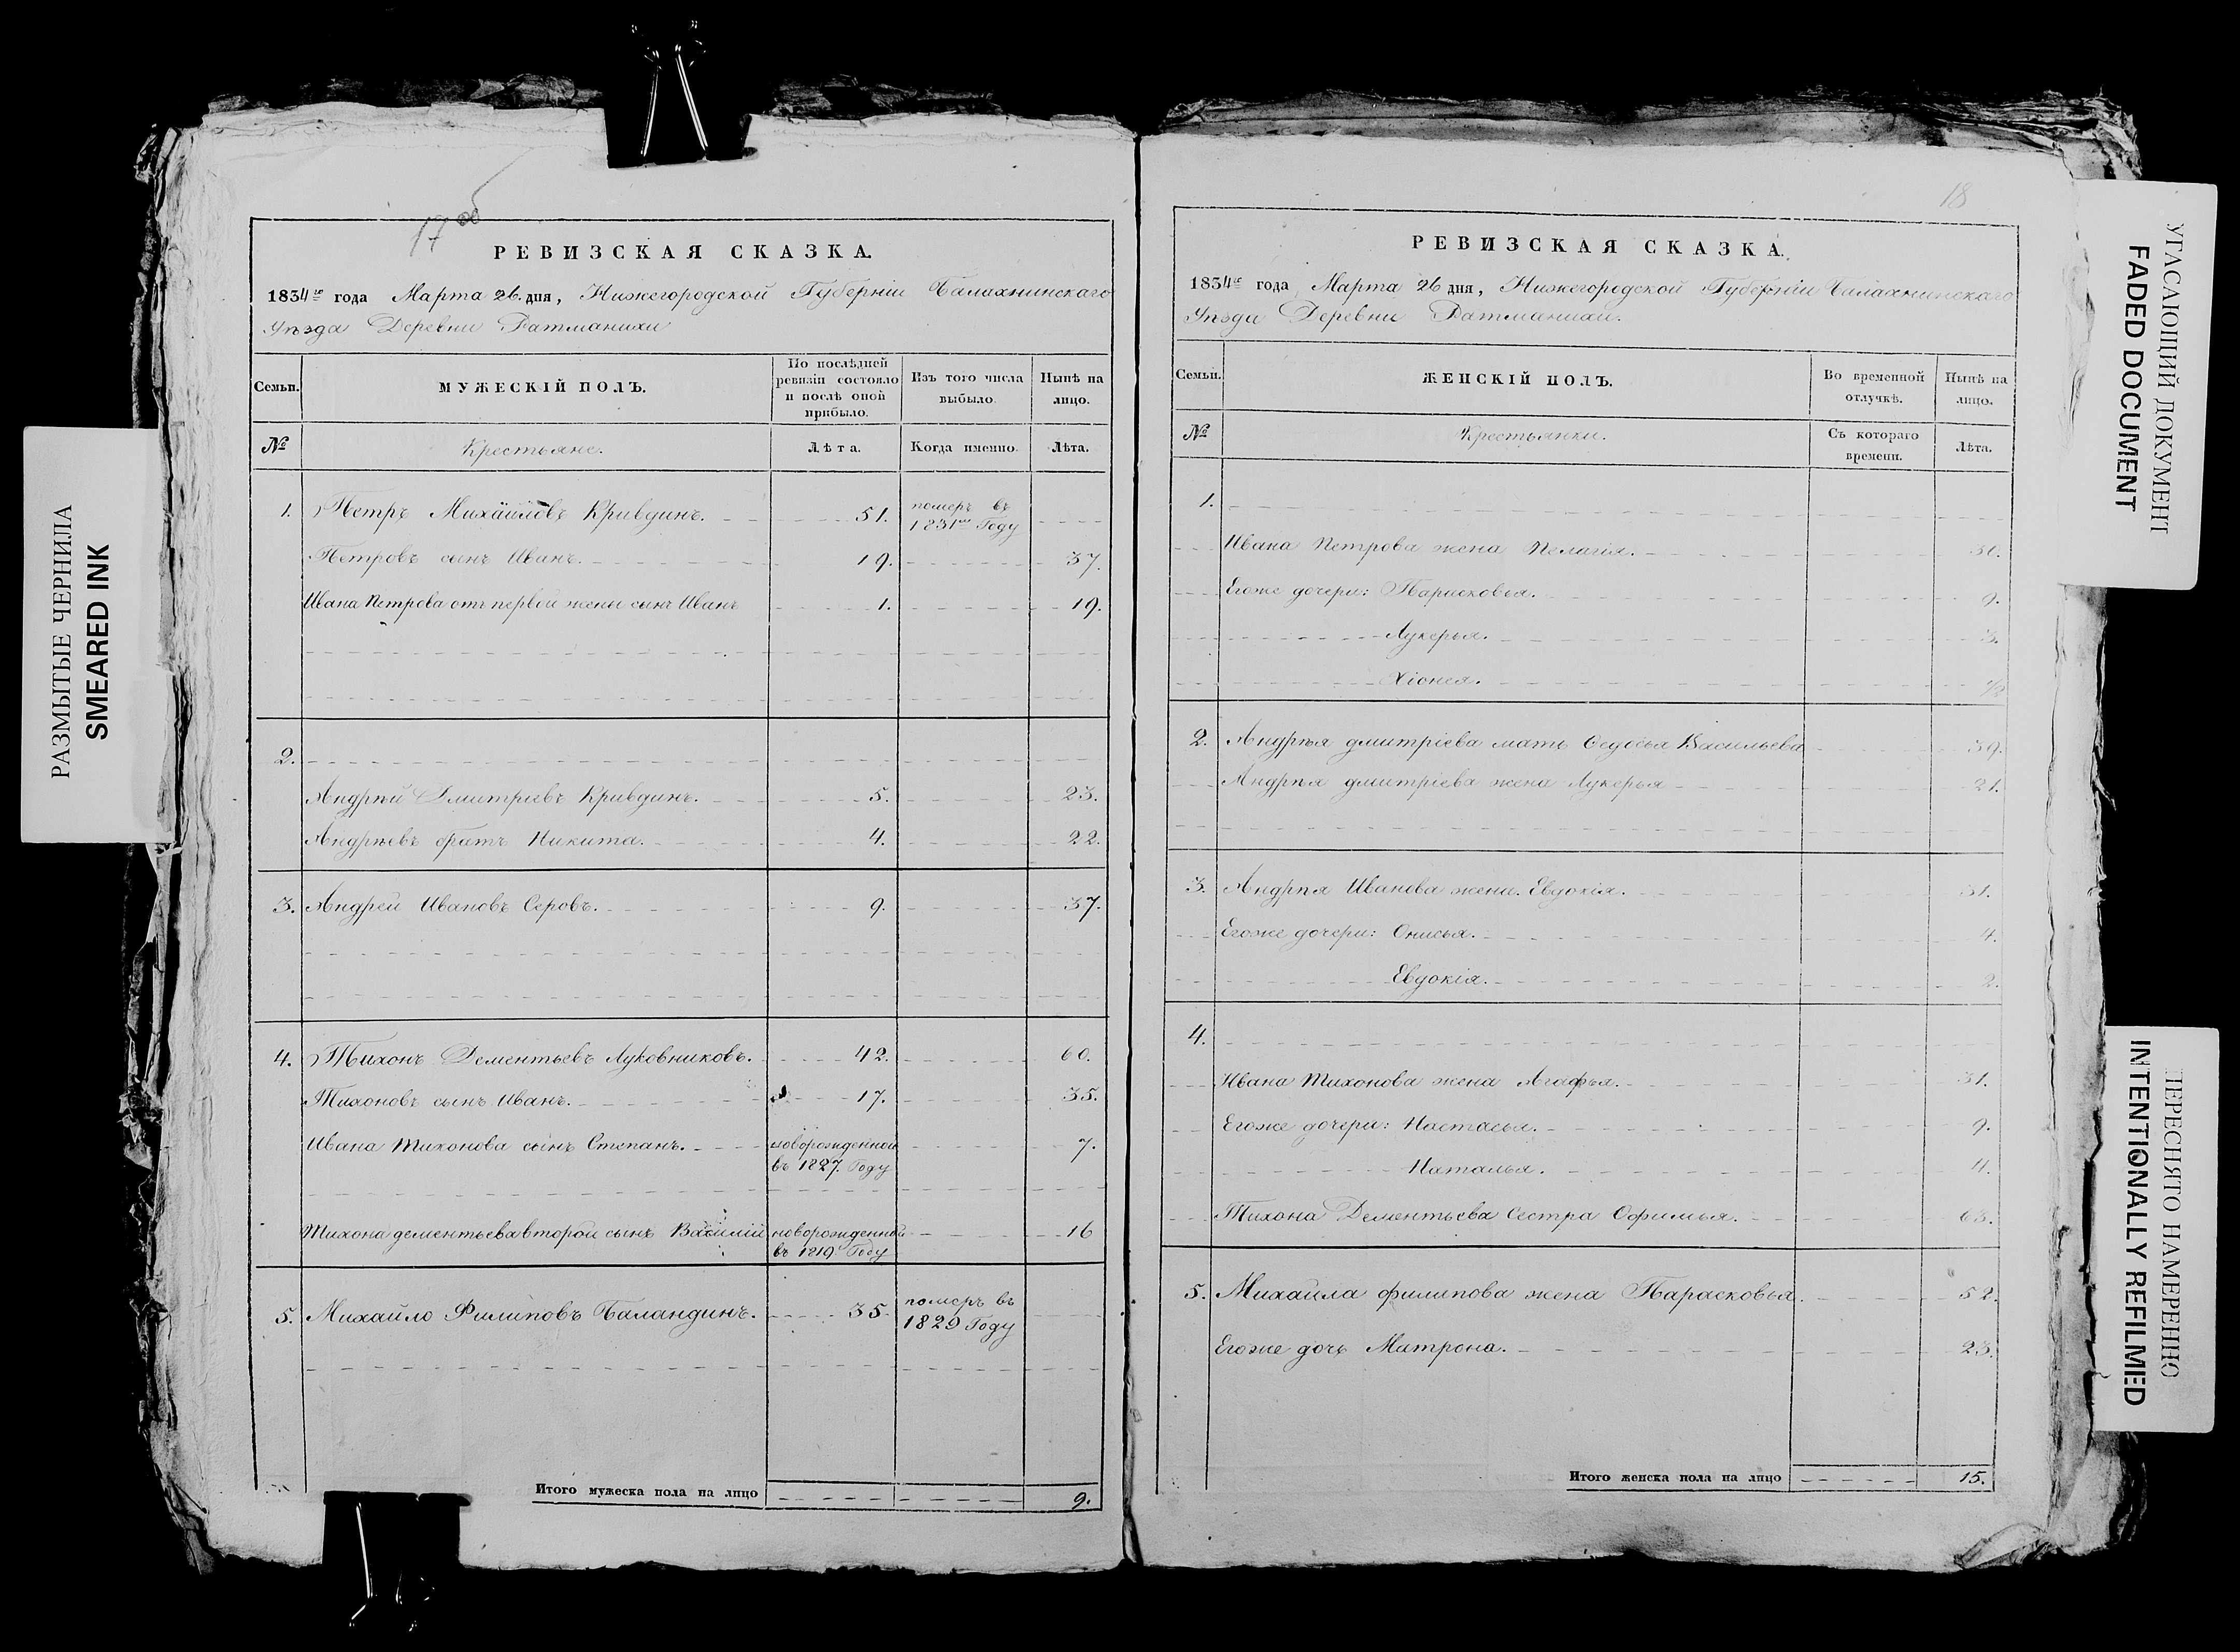 РАЗМЫТЫЕ ЧЕРНИЛА
SMEARED INK
17 об
РЕВИЗСКАЯ СКАЗКА.
1834го года Марта 26. дня, Нижегородской Губерніи Балахнинскаго
Уѣзда Деревни Ратманихи
Семьи.
МУЖЕСКІЙ ПОЛЪ.
По послѣдней ревизіи состояло и послѣ оной прибыло.
Изъ того числа выбыло.
Нынѣ на лицо.
№
Крестьяне.
Лѣта.
Когда именно.
Лѣта.
1. Петръ Михайловъ Кривдинъ. 51. померъ въ 1831мъ Году
Петровъ сынъ Иванъ. 19. 37.
Ивана Петрова отъ первой жены сынъ Иванъ 1. 19.
2.
Андрѣй Дмитріевъ Кривдинъ. 5. 23.
Андрѣевъ братъ Никита. 4. 22.
3. Андрей Ивановъ Серовъ. 9. 37.
4. Тихонъ Дементьевъ Луковниковъ. 42. 60.
Тихоновъ сынъ Иванъ. 17. 35.
Ивана Тихонова сынъ Степанъ. новорожденной 7.
въ 1827. Году
Тихона дементьева второй сынъ Василій новорожденной 16
въ 1819 Году
5. Михайло Филиповъ Баландинъ. 35. померъ въ
1829 Году
Итого мужеска пола на лицо 9.
18
РЕВИЗСКАЯ СКАЗКА.
1834го года Марта 26 дня, Нижегородской Губерніи Балахнинскаго
Уѣзда Деревни Ратманихи.
Семьи.
ЖЕНСКІЙ ПОЛЪ.
Во временной отлучкѣ.
Нынѣ на лицо.
№
Крестьянки.
Съ котораго времени.
Лѣта.
1.
Ивана Петрова жена Пелагія. 31.
Егоже дочери: Парасковья. 9.
Лукерья. 3.
Хіонея. 1/2
2. Андрѣя дмитріева мать Федосья Васильева 39.
Андрѣя дмитріева жена Лукерья 21.
3. Андрѣя Иванова жена Евдокія. 31.
Егоже дочери: Онисья. 4.
Евдокія. 2.
4.
Ивана Тихонова жена Агафья. 31.
Егоже дочери: Настасья. 9.
Наталья. 4.
Тихона Дементьева Сестра Офимья. 63.
5. Михайла филипова жена Парасковья. 52.
Егоже дочь Матрона. 23.
Итого женска пола на лицо 15.
УГАСАЮЩИЙ ДОКУМЕНТ
FADED DOCUMENT
ПЕРЕСНЯТО НАМЕРЕННО
INTENTIONALLY REFILMED